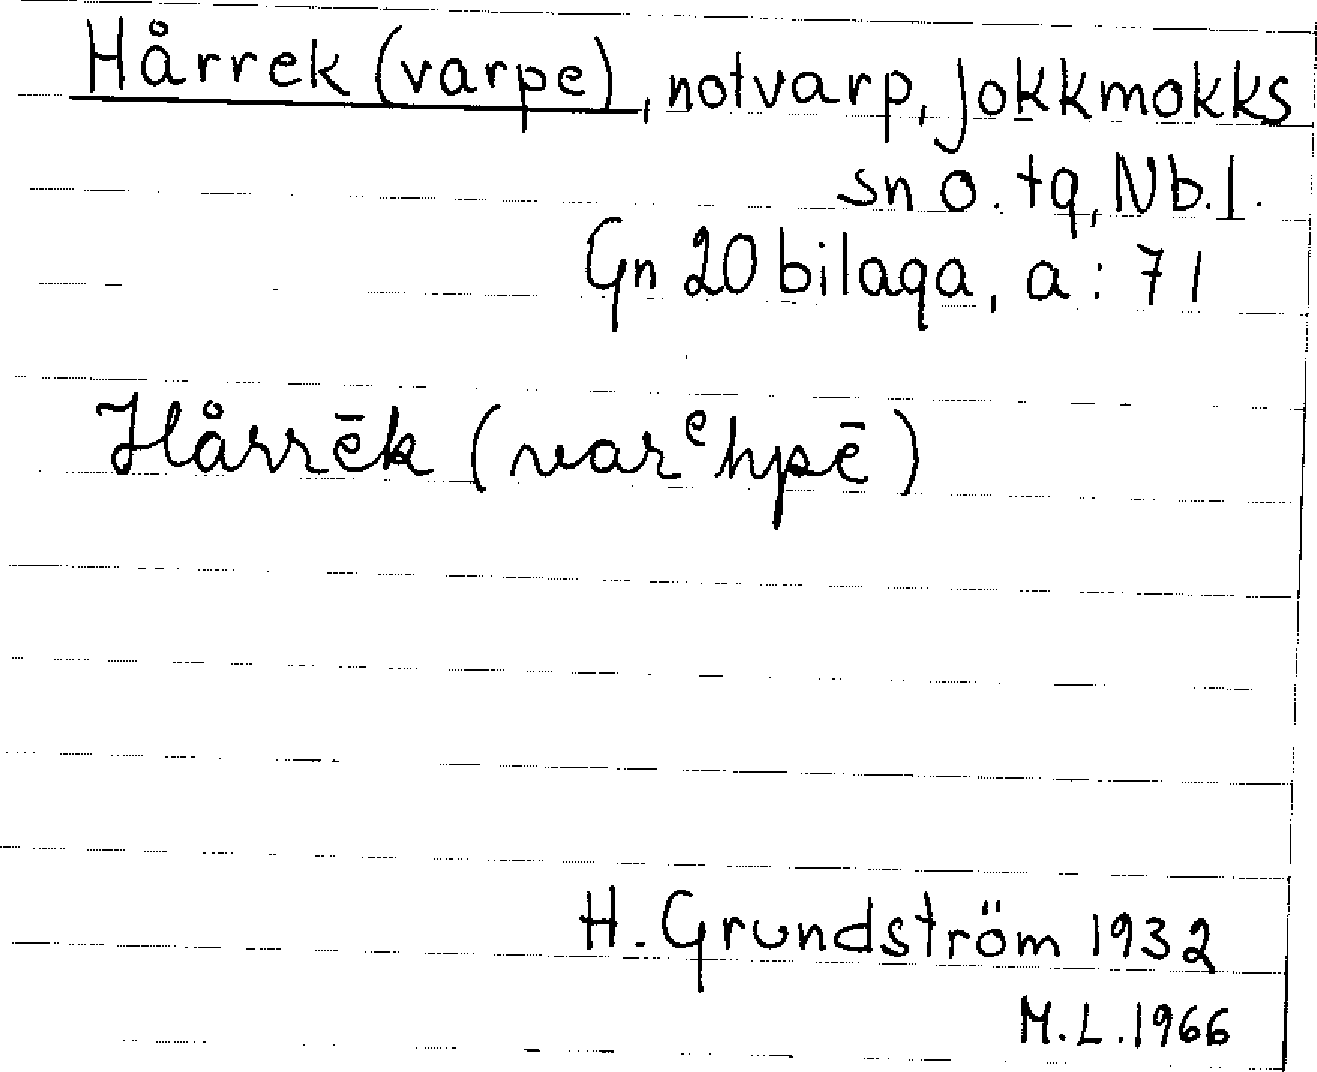 Hårrek (varpe), notvarp, Jokkmokks
sn o. tg, Nb.l.
Gn 20 bilaga, a: 71
Hårrēk (varᵉhpē)
H. Grundström 1932
M.L.1966